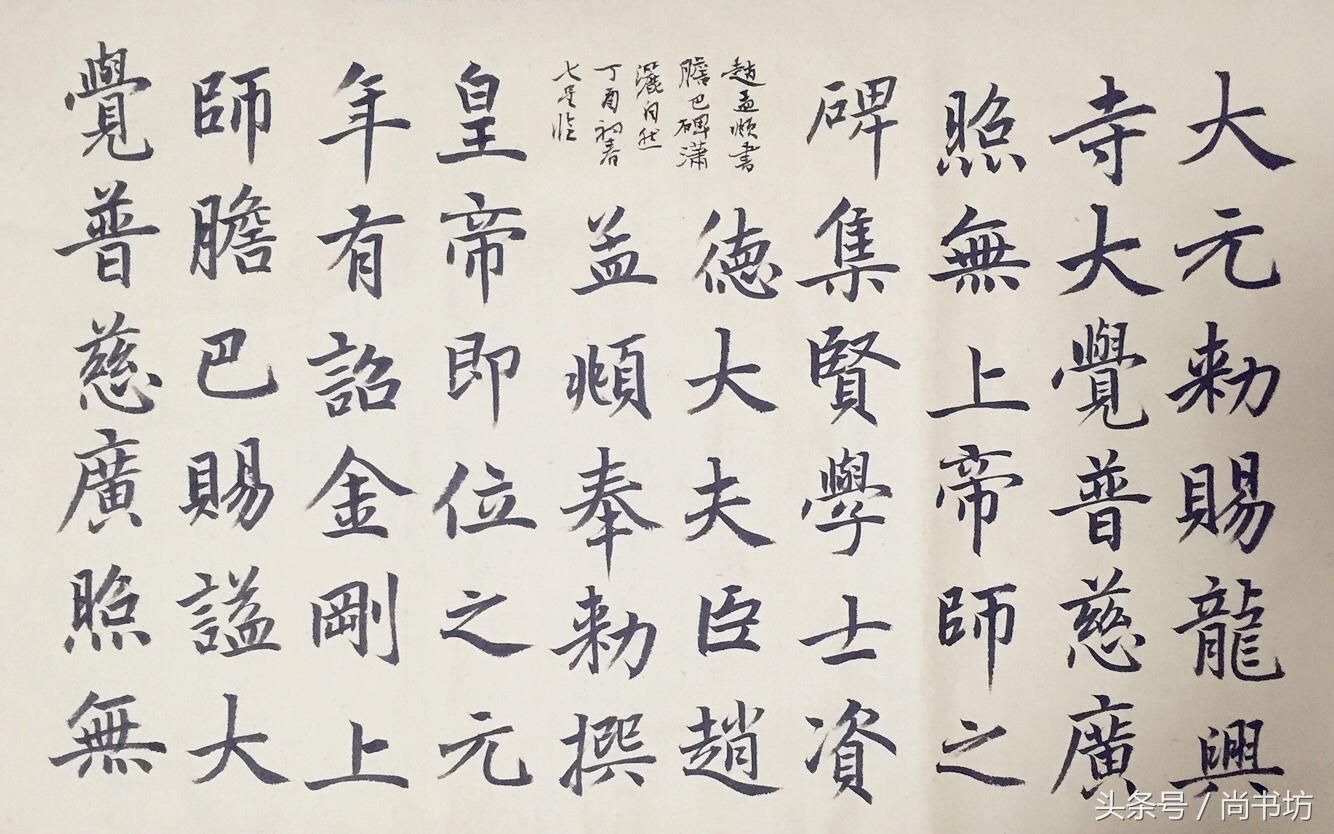 大元勑賜龍興
寺大覺普慈廣
照無上帝師之
碑集賢學士資
德大夫臣趙
孟頫奉勑撰
皇帝即位之元
年有詔金剛上
師膽巴賜謚大
覺普慈廣照無
趙孟頫書
膽巴碑瀟
灑自然
丁酉初春
七星臨
头条号 / 尚书坊